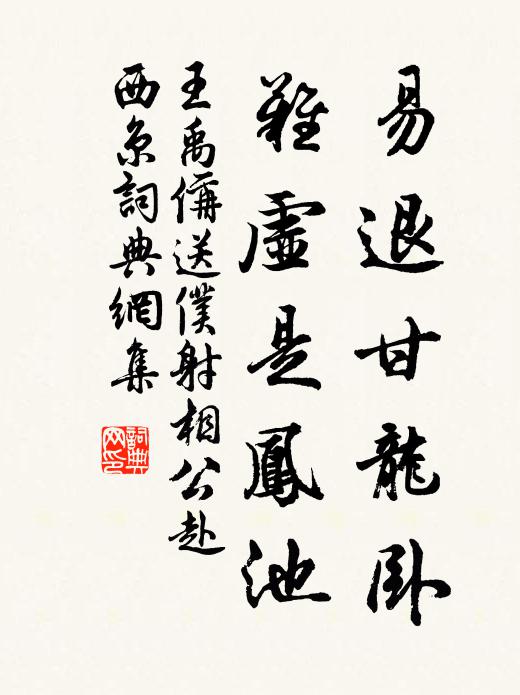 易退甘龍臥
難虛是鳳池
王禹偁送僕射相公赴
西京詞典網集
詞典網印